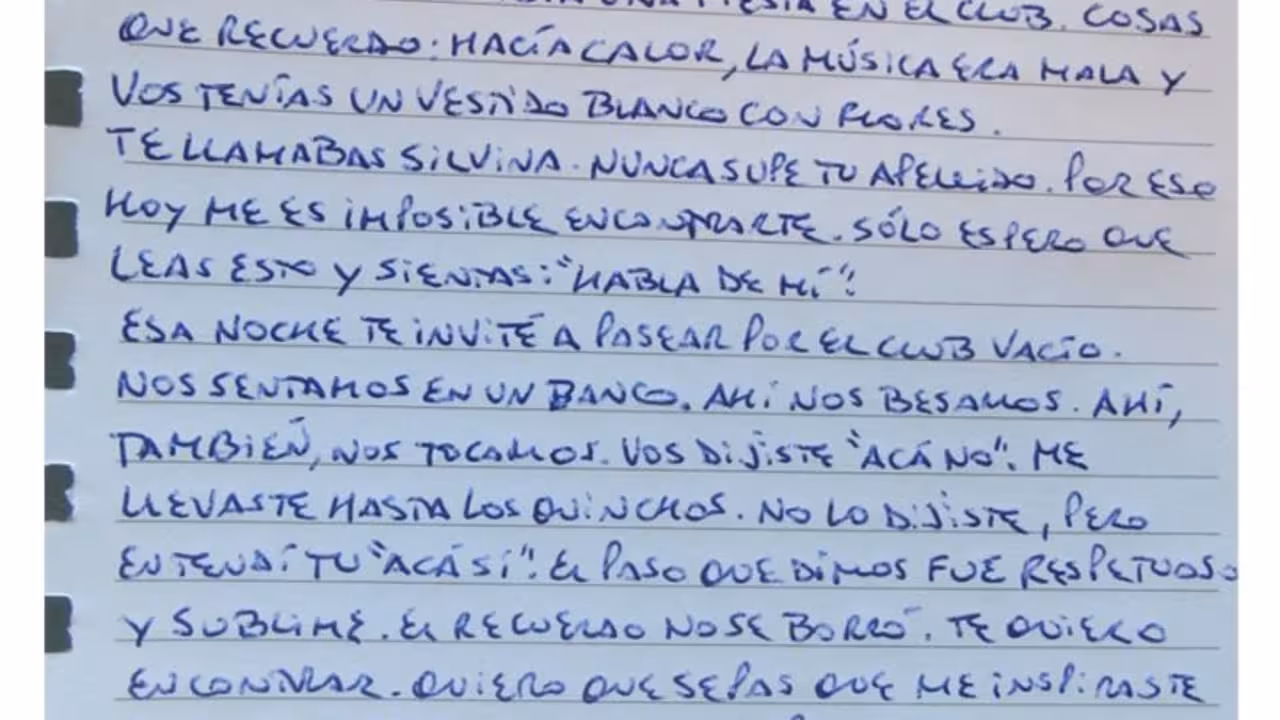 EN EL CLUB. COSAS
QUE RECUERDO: HACÍA CALOR, LA MÚSICA ERA MALA Y
VOS TENÍAS UN VESTIDO BLANCO CON FLORES.
TE LLAMABAS SILVINA. NUNCA SUPE TU APELLIDO. POR ESO
HOY ME ES IMPOSIBLE ENCONTRARTE. SÓLO ESPERO QUE
LEAS ESTO Y SIENTAS: "HABLA DE MÍ".
ESA NOCHE TE INVITÉ A PASEAR POR EL CLUB VACÍO.
NOS SENTAMOS EN UN BANCO. AHÍ NOS BESAMOS. AHÍ,
TAMBIÉN, NOS TOCAMOS. VOS DIJISTE "ACÁ NO". ME
LLEVASTE HASTA LOS QUINCHOS. NO LO DIJISTE, PERO
ENTENDÍ TU "ACÁ SÍ". EL PASO QUE DIMOS FUE RESPETUOSO
Y SUBLIME. EL RECUERDO NO SE BORRÓ. TE QUIERO
ENCONTRAR. QUIERO QUE SEPAS QUE ME INSPIRASTE